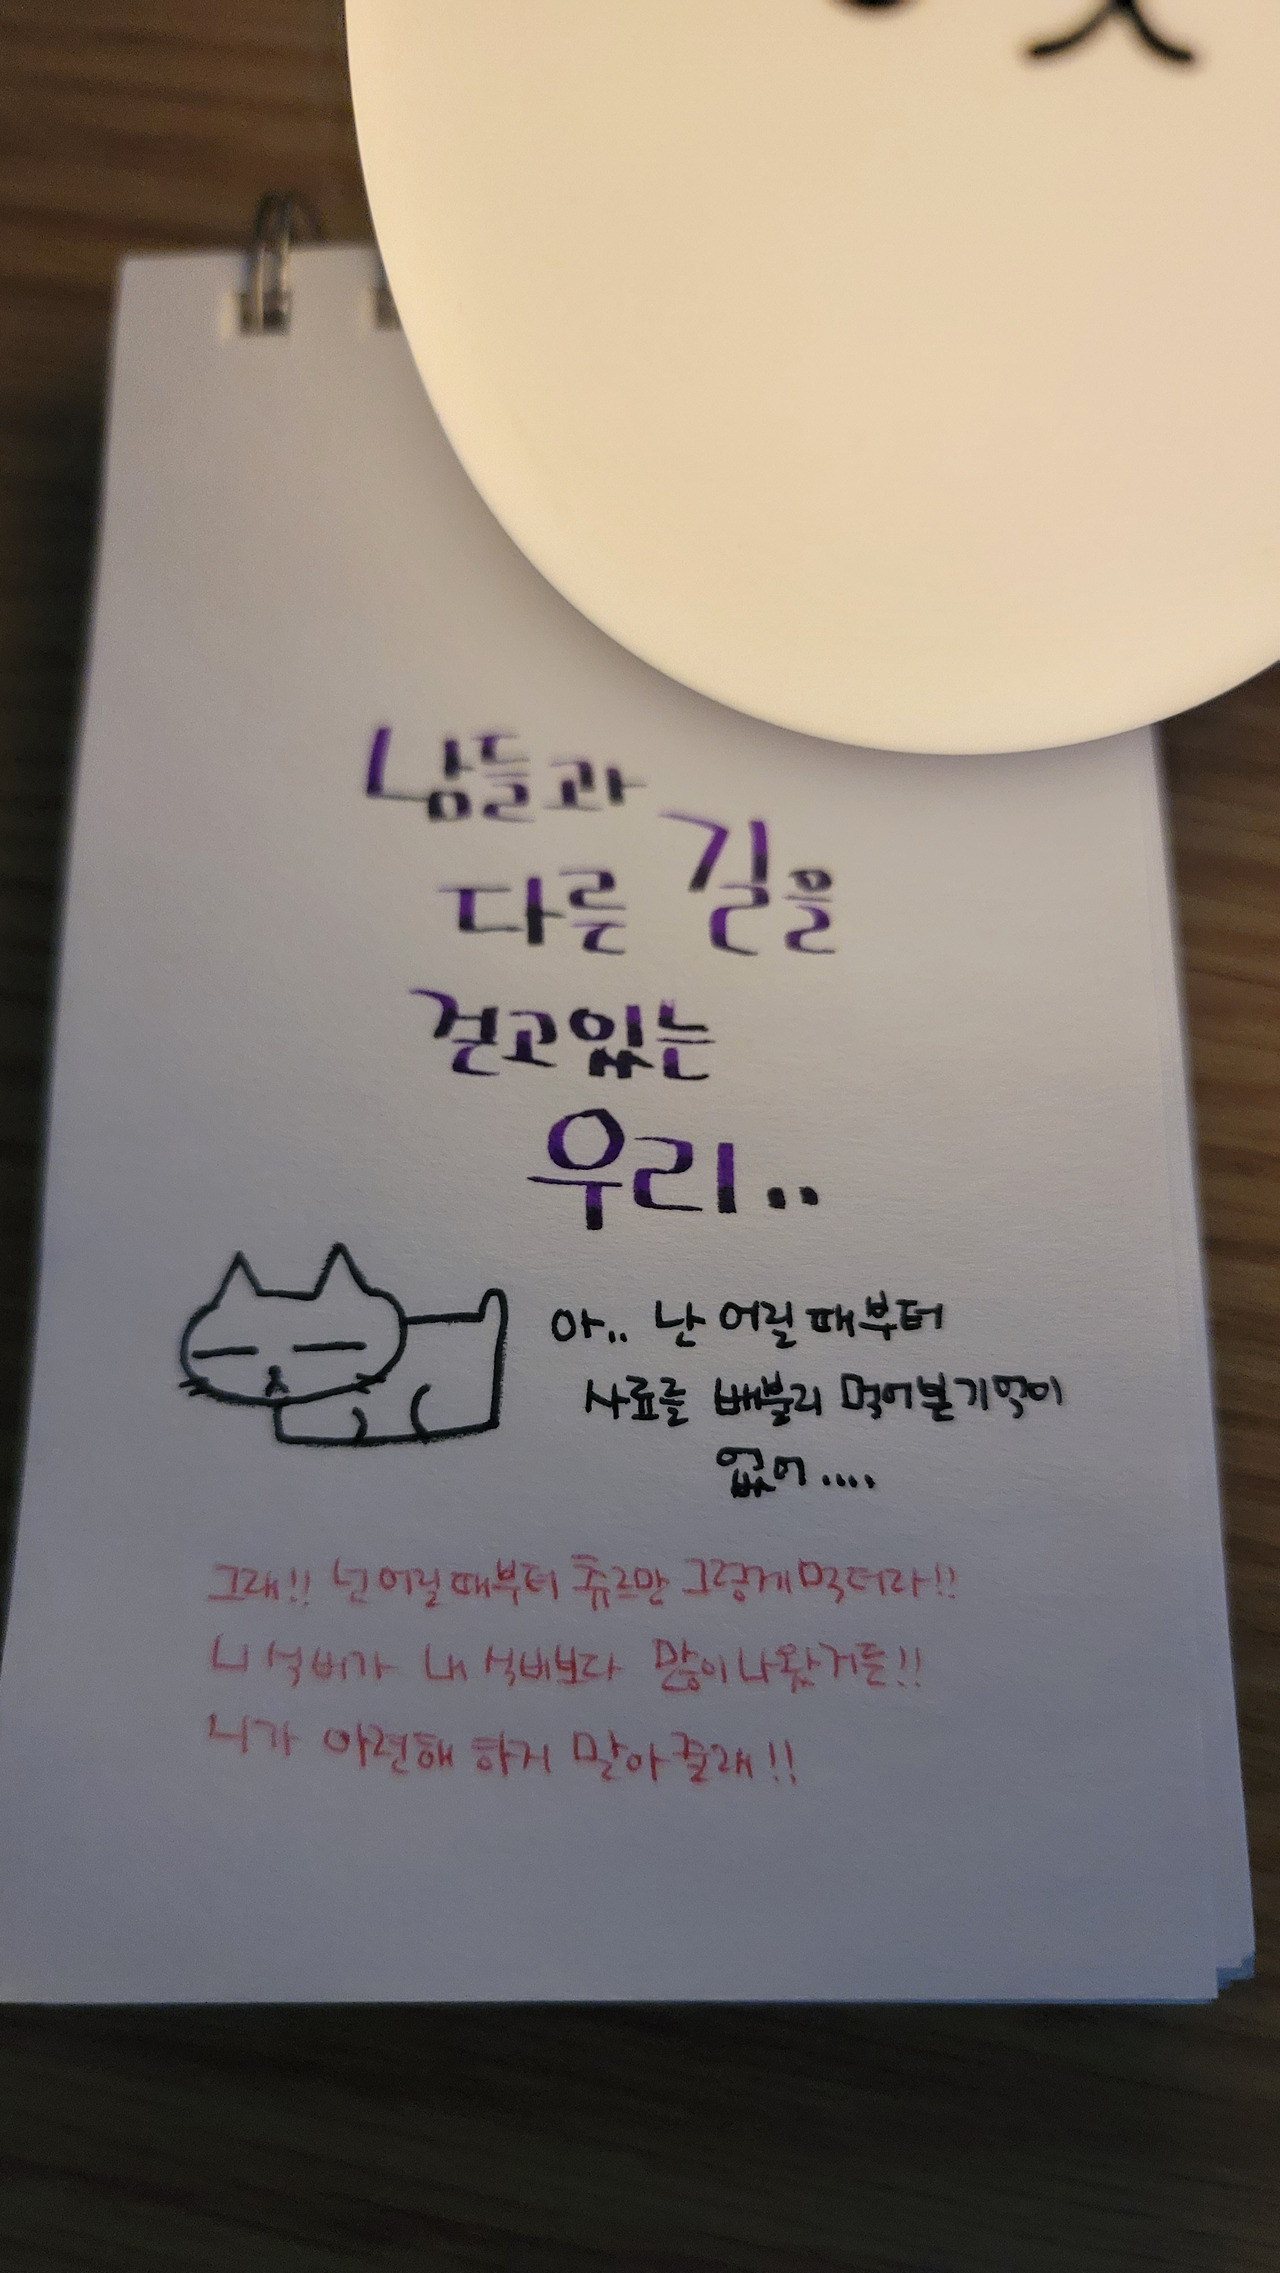 남들과
다른 길을
걷고있는
우리..
아.. 난 어릴때부터
사료를 배불리 먹어본기억이
없어....
그래!! 넌어릴때부터 츄르만 그렇게먹더라!!
니 식비가 내 식비보다 많이나왔거든!!
니가 아련해 하지 말아줄래!!